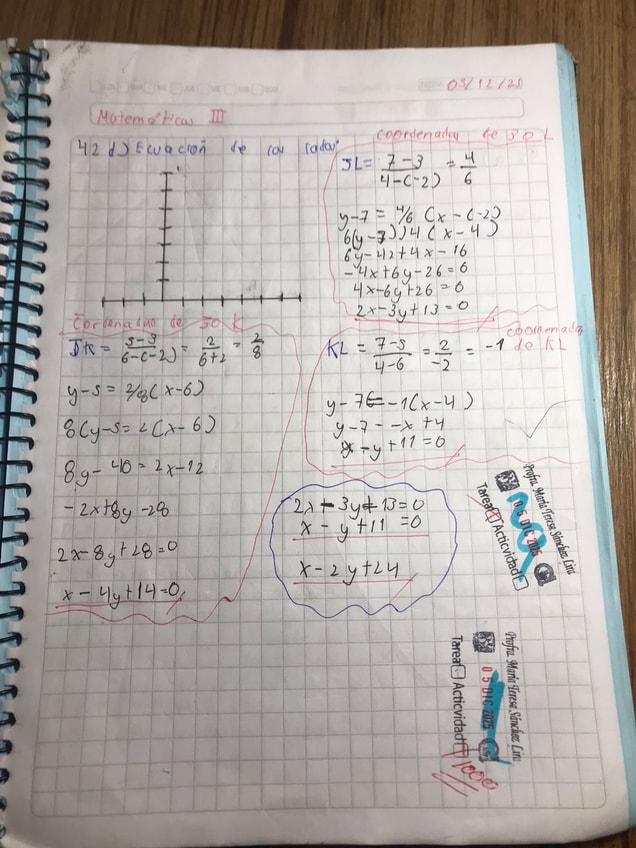 03/12/25
Matemáticas III
42 d) Ecuación de los lados
coordenadas de JOL
JL = 7-3 / 4-(-2) = 4/6
y-7 = 4/6 (x-(-2)
6(y-7))4(x-4)
6y-42+4x-16
-4x+6y-26=0
4x-6y+26=0
2x-3y+13=0
Cordenadas de JO K
JK= 5-3 / 6-(-2) = 2 / 6+2 = 2/8
y-5=2/8(x-6)
8(y-5=2(x-6)
8y-40=2x-12
-2x+8y-28
2x-8y+28=0
x-4y+14=0
coordenadas de KL
KL = 7-5 / 4-6 = 2 / -2 = -1
y-7=-1(x-4)
y-7--x+4
x-y+11=0
2x-3y+13=0
x-y+11=0
x-2y+24
Profra. María Teresa Sánchez Lira
05 DIC 2025
Tarea Acticvidad
Profra. María Teresa Sánchez Lira
05 DIC 2025
Tarea Acticvidad